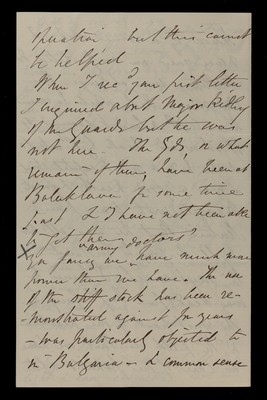 situation but this cannot
be helped
When I recd your first letter
I enquired about Major Ridley
of the Guards but he was
not here - The Gds, or what
remain of them, have been at
Balaklava for some time
past & I have not been able
to get there
X You fancy we army doctors have much more
power than we have. The use
of the stiff stock has been re-
-monstrated against for years
- was particularly objected to
in Bulgaria - & common sense